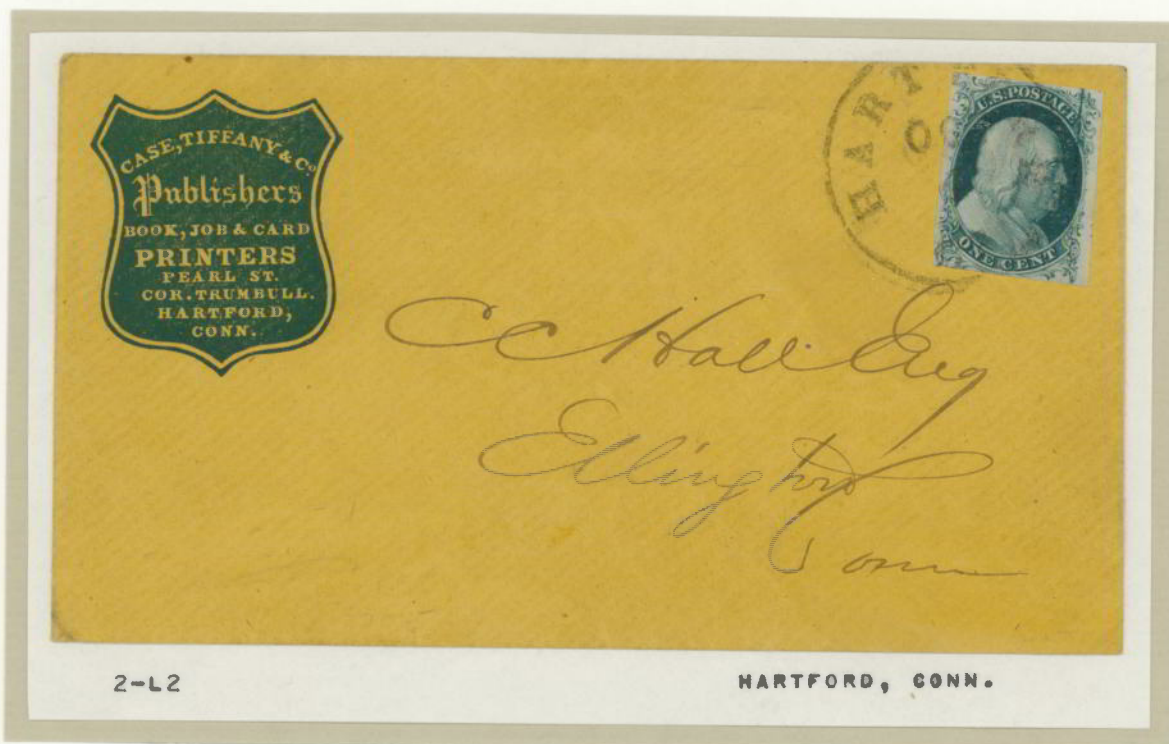 CASE, TIFFANY & Co
Publishers
BOOK, JOB & CARD
PRINTERS
PEARL ST.
COR. TRUMBULL.
HARTFORD,
CONN.
HART
OC
U.S. POSTAGE
ONE CENT
C C Hall Esq
Ellington
Conn
2-L2
HARTFORD, CONN.